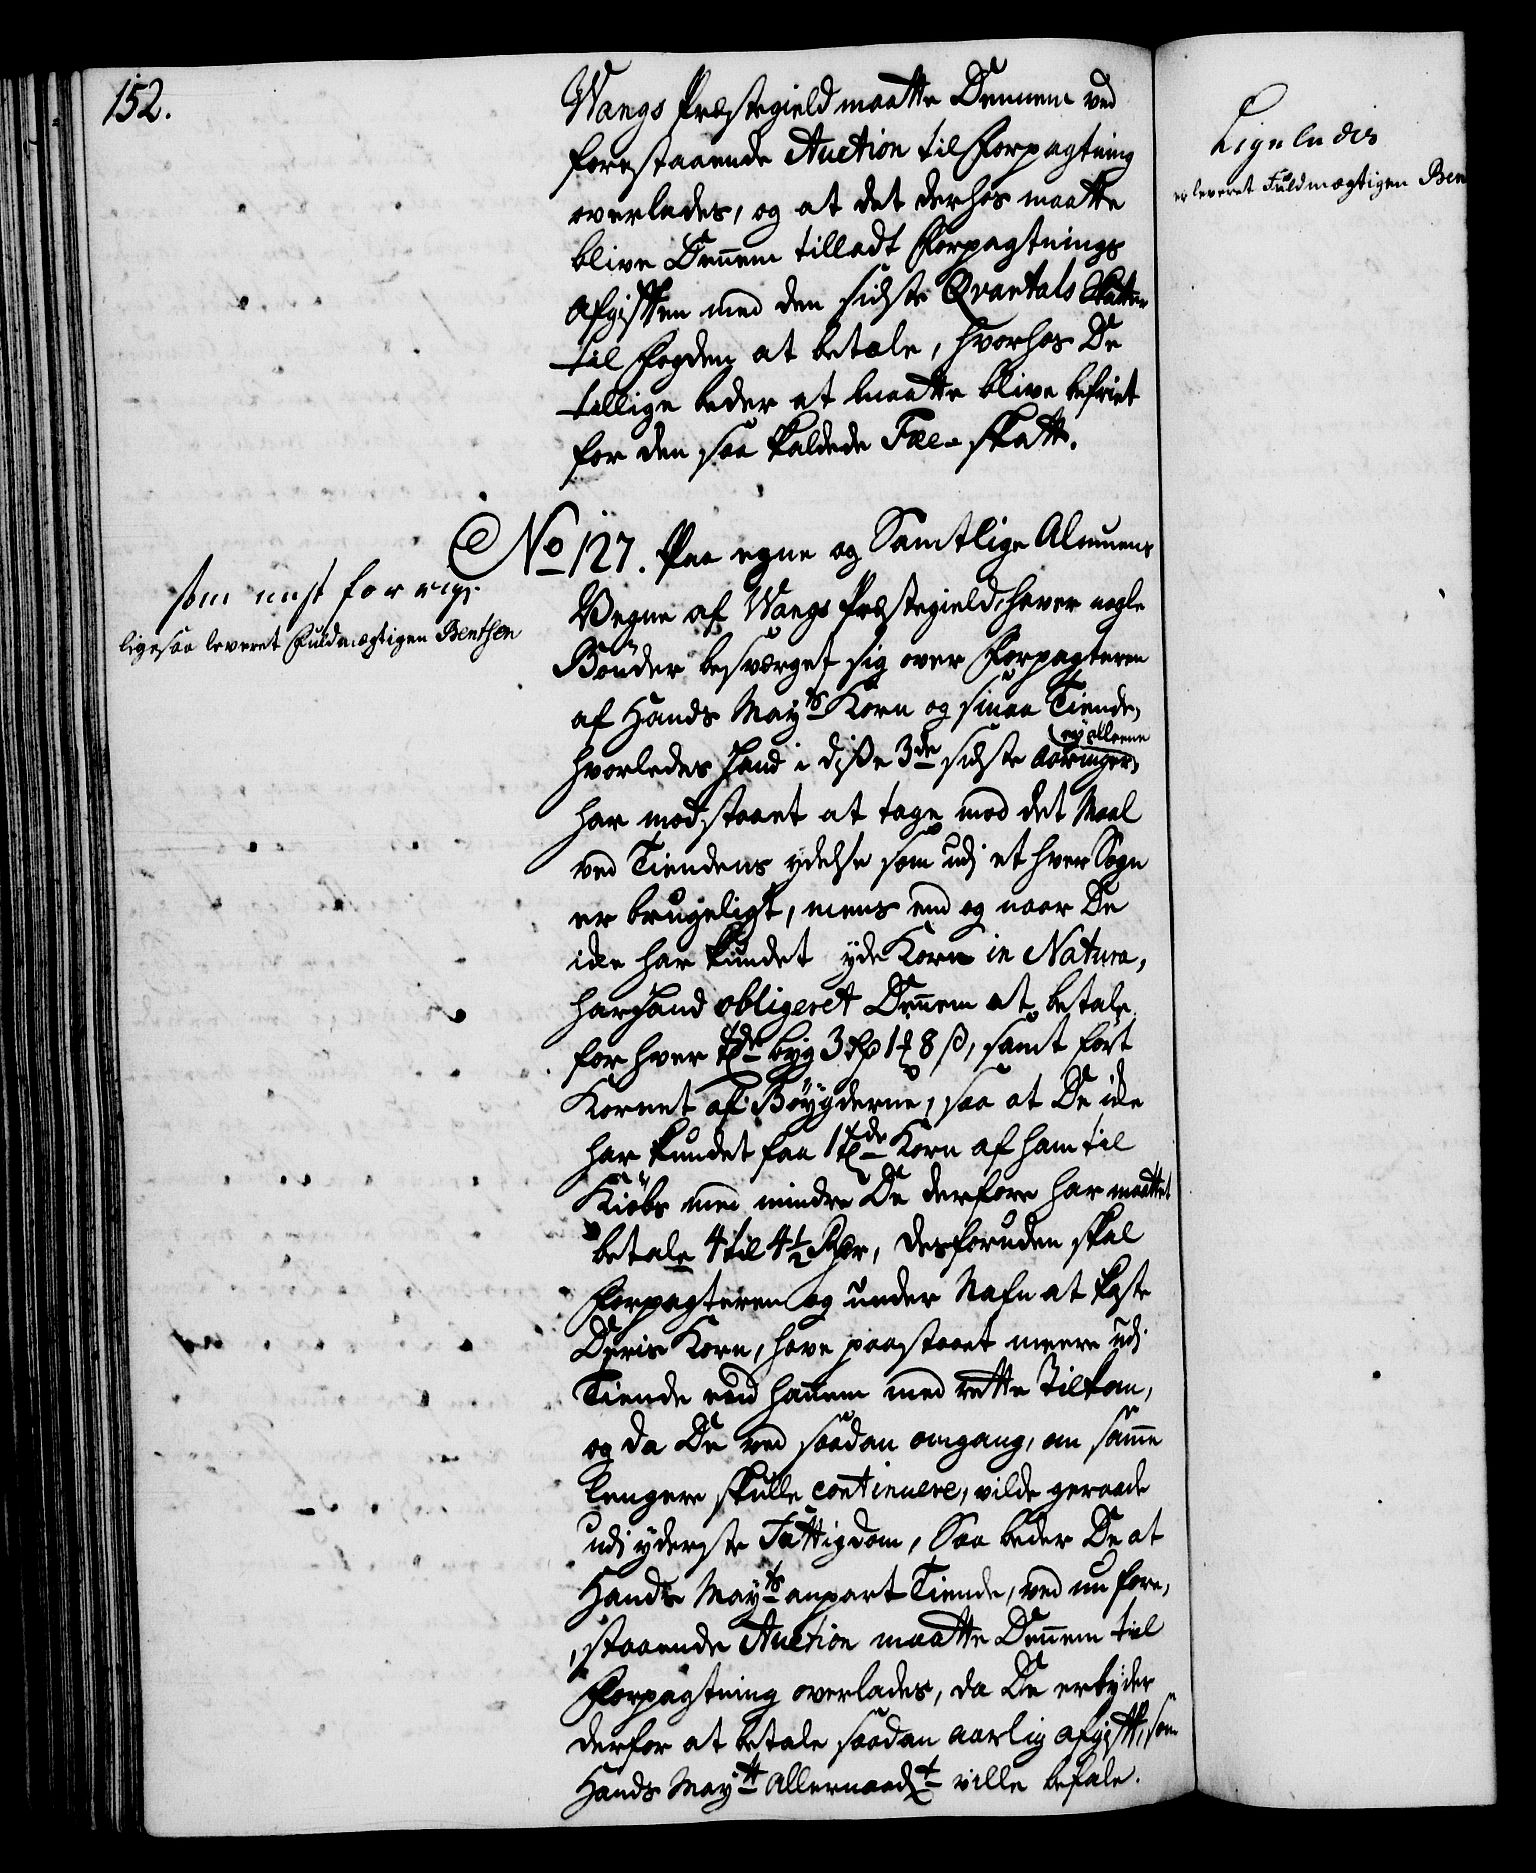 152.
Wangs Præstegield maatte Dennem ved
forestaaende Auction til Forpagtning
overlades, og at det derhos maatte
blive Dennem tilladt Forpagtnings
Afgifften med den sidste Qvartals Skatter
til Fogden at betale, hvorhos De
tillige beder at maatte blive befriet
for den saa kaldede Fæe-Skatt.
No 127. Paa egne og Samtlige Almuens
Vegne af Wangs Præstegield, haver nogle
Bønder besværget sig over Forpagteren
af Hands Mayts Korn og smaa Tiende,
hvorledes Hand i disse 3de sidste Aaringer,
ey alleene
har modstaaet at tage mod det Maal
ved Tiendens ydelse som udj et hver Sogn
er brugeligt, mens end og naar De
icke har kundet yde Korn in Natura,
har Hand obligeret Dennem at betale
for hver tde byg 3 rdr 1 ß 8 ß, samt ført
Kornet af Bøygderne, saa at De icke
har kundet faa 1 tde Korn af ham til
Kiøbs med mindre De derfore har maattet
betale 4 til 4 1/2 Rdr, desforuden skal
Forpagteren og under Nafn at kaste
Deris Korn, have paastaaet meere udj
Tiende end hannem med rette Tilkom,
og da De ved saadan omgang, om samme
længere skulle continuere, vilde geraade
udj yderste Fattigdom, Saa beder De at
Hands Mayts anpart Tiende, ved nu fore,
staaende Auction maatte Dennem til
Forpagtning overlades, da De erbyder
derfor at betale saadan aarlig afgifft, som
Hands Maytt Allernaadt ville befale.
som nest forrige
ligesaa leveret Fuldmægtigen Benthen
Ligeledis
er leveret Fuldmægtigen Ben